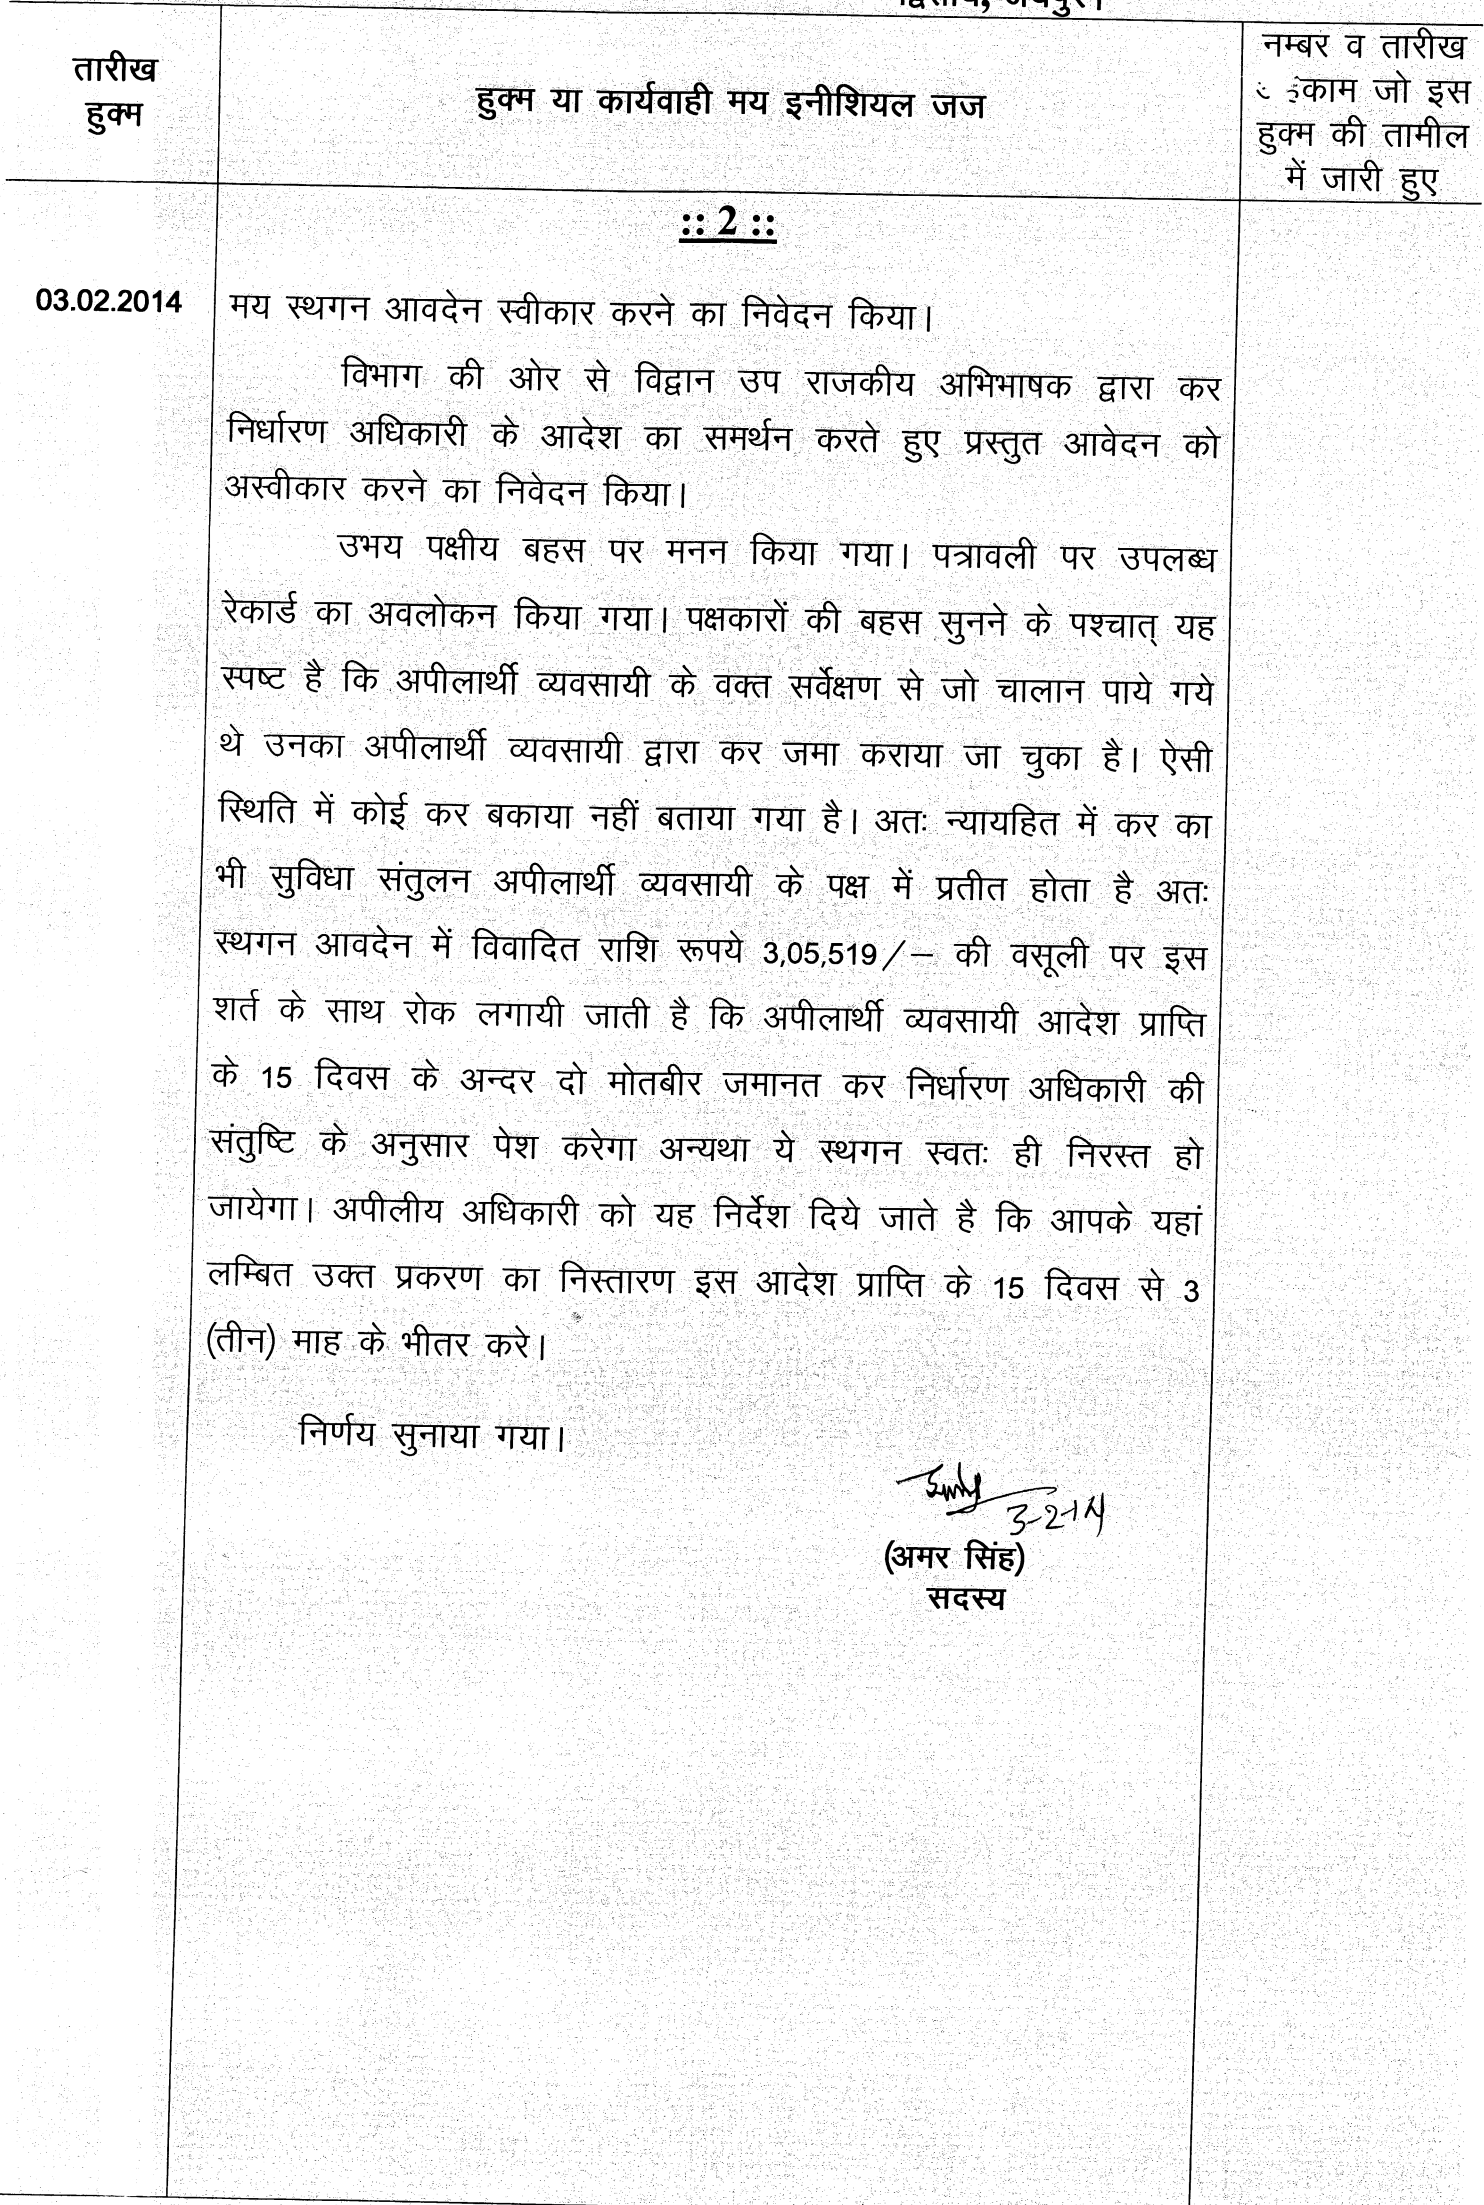 द्वितीय, जयपुर।
तारीख
हुक्म
हुक्म या कार्यवाही मय इनीशियल जज
नम्बर व तारीख
हकाम जो इस
हुक्म की तामील
में जारी हुए
:: 2 ::
03.02.2014
मय स्थगन आवदेन स्वीकार करने का निवेदन किया।
विभाग की ओर से विद्वान उप राजकीय अभिभाषक द्वारा कर
निर्धारण अधिकारी के आदेश का समर्थन करते हुए प्रस्तुत आवेदन को
अस्वीकार करने का निवेदन किया।
उभय पक्षीय बहस पर मनन किया गया। पत्रावली पर उपलब्ध
रेकार्ड का अवलोकन किया गया। पक्षकारों की बहस सुनने के पश्चात् यह
स्पष्ट है कि अपीलार्थी व्यवसायी के वक्त सर्वेक्षण से जो चालान पाये गये
थे उनका अपीलार्थी व्यवसायी द्वारा कर जमा कराया जा चुका है। ऐसी
स्थिति में कोई कर बकाया नहीं बताया गया है। अतः न्यायहित में कर का
भी सुविधा संतुलन अपीलार्थी व्यवसायी के पक्ष में प्रतीत होता है अतः
स्थगन आवदेन में विवादित राशि रूपये 3,05,519/– की वसूली पर इस
शर्त के साथ रोक लगायी जाती है कि अपीलार्थी व्यवसायी आदेश प्राप्ति
के 15 दिवस के अन्दर दो मोतबीर जमानत कर निर्धारण अधिकारी की
संतुष्टि के अनुसार पेश करेगा अन्यथा ये स्थगन स्वतः ही निरस्त हो
जायेगा। अपीलीय अधिकारी को यह निर्देश दिये जाते है कि आपके यहां
लम्बित उक्त प्रकरण का निस्तारण इस आदेश प्राप्ति के 15 दिवस से 3
(तीन) माह के भीतर करे।
निर्णय सुनाया गया।
3-2-14
(अमर सिंह)
सदस्य